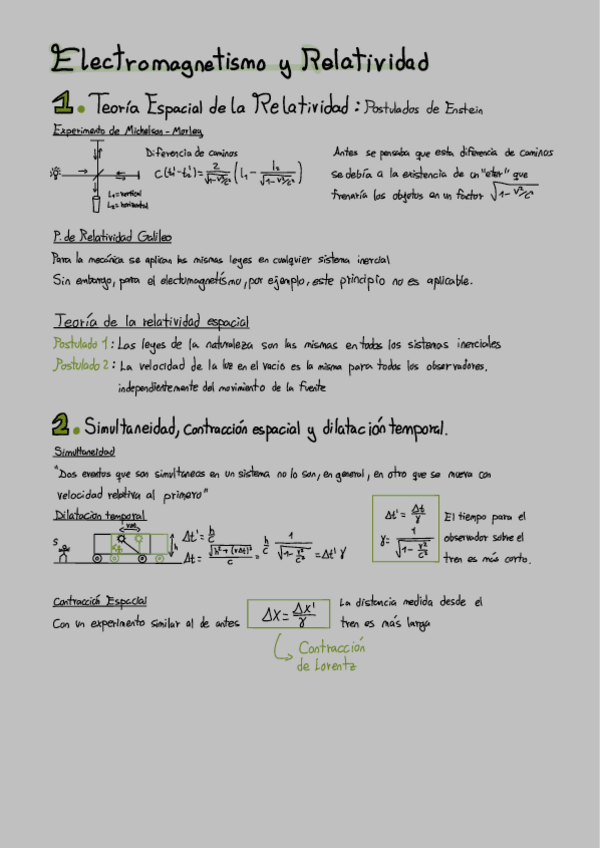 Electromagnetismo y Relatividad
1. Teoría Espacial de la Relatividad: Postulados de Enstein
Experimento de Michelson-Morley
Diferencia de caminos
c(t₁'-t₂')= 2/√(1-v²/c²) (L₁ - L₂/√(1-v²/c²))
L₁=vertical
L₂=horizontal
Antes se pensaba que esta diferencia de caminos
se debía a la existencia de un "eter" que
frenaría los objetos en un factor √(1-v²/c²)
P. de Relatividad Galileo
Para la mecánica se aplican las mismas leyes en cualquier sistema inercial
Sin embargo, para el electromagnetismo, por ejemplo, este principio no es aplicable.
Teoría de la relatividad espacial
Postulado 1: Las leyes de la naturaleza son las mismas en todos los sistemas inerciales
Postulado 2: La velocidad de la luz en el vacio es la misma para todos los observadores,
independientemente del movimiento de la fuente
2. Simultaneidad, contracción espacial y dilatación temporal.
Simultaneidad
"Dos eventos que son simultaneos en un sistema no lo son, en general, en otro que se mueva con
velocidad relativa al primero"
Dilatacion temporal
S
h
Δt' = h/c
Δt = √(h²+(vΔt)²)/c = h/c 1/√(1-v²/c²) = Δt' γ
Δt' = Δt/γ
γ = 1/√(1-v²/c²)
El tiempo para el
observador sobre el
tren es más corto.
Contracción Espacial
Con un experimento similar al de antes
Δx = Δx'/γ
La distancia medida desde el
tren es más larga
Contracción
de Lorentz